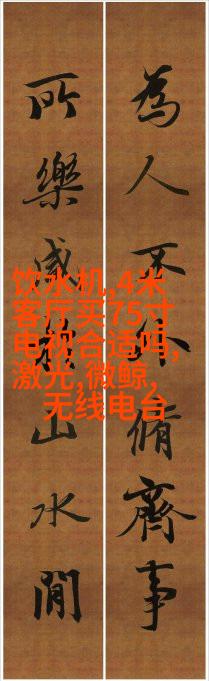 為人不外脩齊事
所樂山水間
饮水机,4米
客厅买75寸
电视合适吗,
激光,微鲸,
无线电台